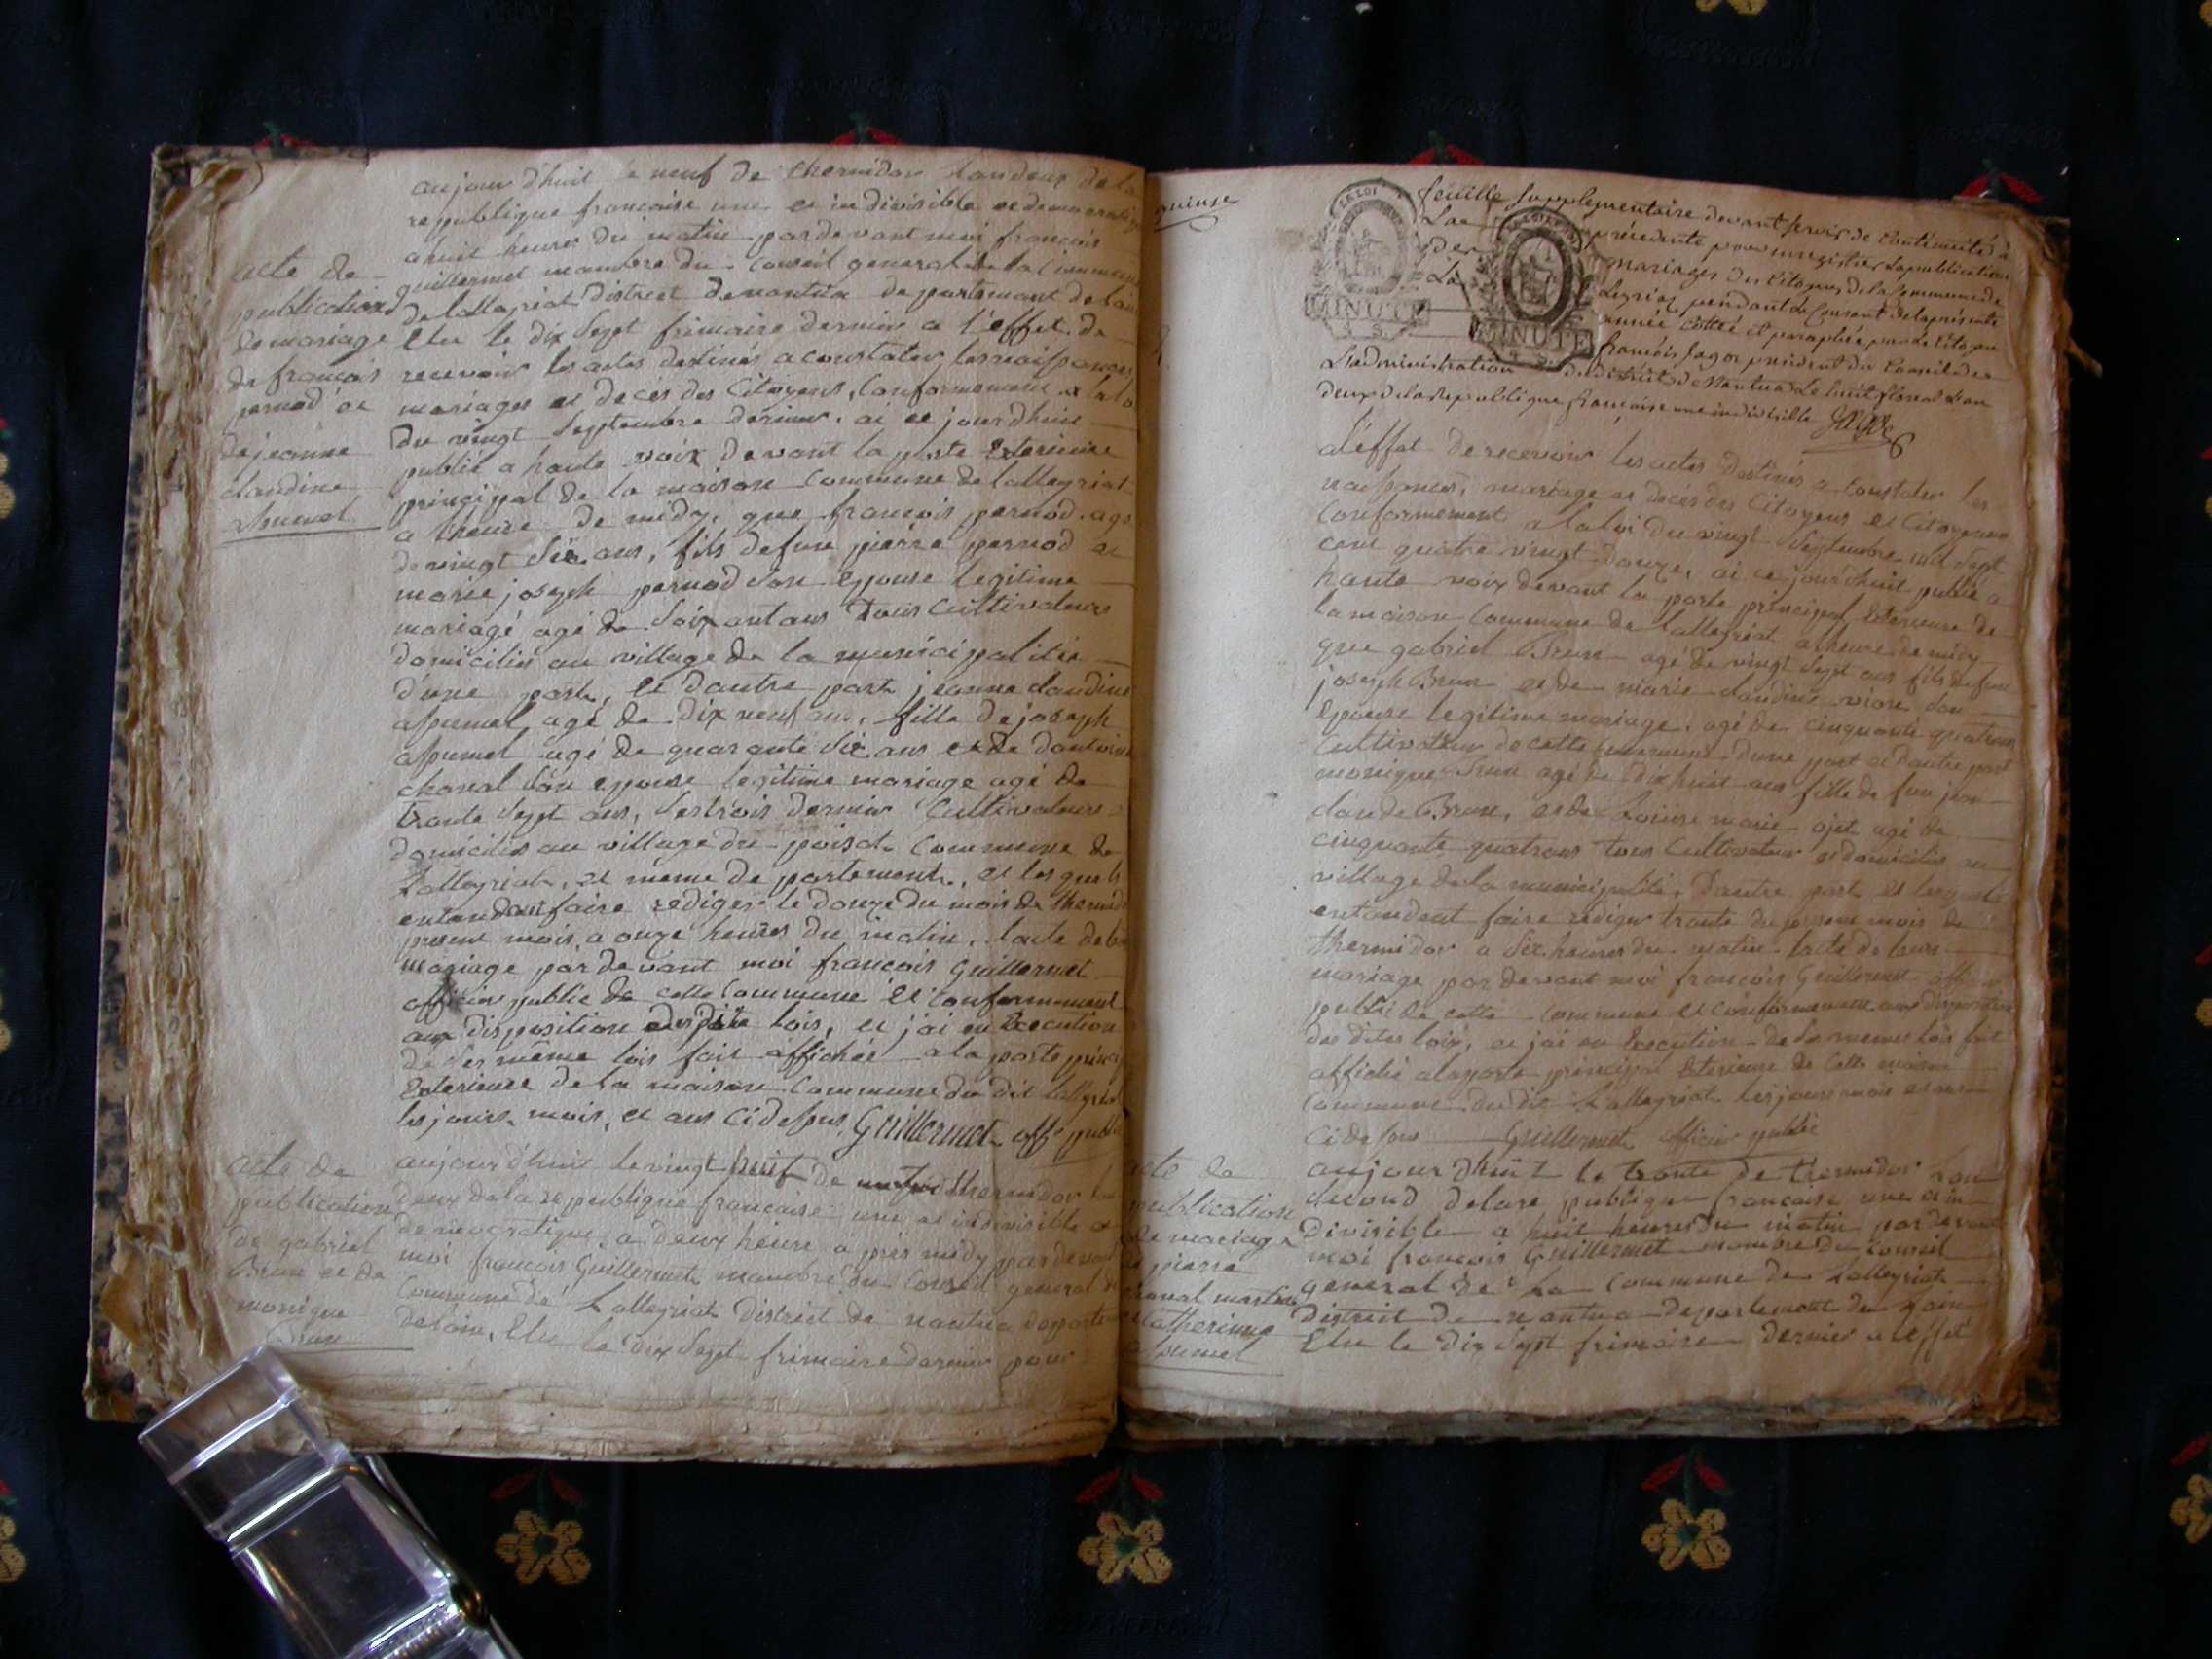 aujour d'huit le neuf de thermidor lan deux de la
republique francaise une et in divisible et democratique
a huit heures du matin par devant moi francois
guillermet mambre du conseil general de la commune
de lalleyriat district de nantua departemant de lain
Elu le dix sept frimaire dernier a l'effet de
recevoir les actes destinés a constater les naissances
mariages et decés des Citoyens, Conformement a la loi
du vingt septembre dernier. ai ce jourdhuit
publié a haute voix devant la porte Exterieure
principal de la maison commune de lalleyriat
a lheure de midy, que francois pernod agé
de vingt six ans, fils defun pierre pernod et
marie joseph pernod son Epouse legitime
mariagé agé de soixantans tous Cultivateurs
domiciliés au village de la municipalitée
d'une part, et dautre part jeanne claudine
assumel agé de dix neuf ans, fille de joseph
assumel agé de quarante six ans et de
chanal son epouse legitime mariage agé de
trante sept ans, les trois dernier Cultivateurs
domiciliés au village du poisat Commune de
Lalleyriat, et même departement, et les quels
entendent faire rediger le douze du mois de thermidor
present mois a onze heures du matin, lacte de leur
mariage par devant moi francois Guillermet
officier public de cette commune et conformement
aux disposition desdite lois, et j'ai en Execution
de ses même lois fait affichée a la porte principal
Exterieure de la maison commune du dit lalleyriat
les jours, mois, et ans ci dessus Guillermet off. public
acte de
publication
de mariage
de francois
pernod et
de jeanne
claudine
assumel
aujour d'huit le vingt neuf de thermidor lan
deux de la republique francaise une et indivisible et
democratique, a deux heure a prés midy par devant
moi francois Guillermet mambre du Conseil general de
Commune de Lalleyriat District de nantua departement
delain, Elu le dix sept frimaire dernier pour
acte de
publication
de gabriel
Brun et de
monique
Brun
quinze
feuille supplementaire devant servir de Continuité à
La precedente pour enregistrer La publication
Des mariages des Citoyens de la Commune de
La Leyriat pendant Le Courant de la présente
année côttée et paraphée par le Citoyen
francois Jagot president du Conseil de
L'administration du district de Nantua Le huit floreal L'an
deux de la Republique française une indivisible Jagot
MINUTE
MINUTE
a l'effet de recevoir les actes destinés a constater les
naissances, mariage et decés des Citoyens et Citoyenne
conformement a la loi du vingt septembre mil sept
cent quatre vingt douze, ai ce jourdhuit publié a
haute voix devant la porte principal Exterieure de
la maison commune de Lalleyriat a lheure de midy
que gabriel Brun agé de vingt sept ans fils defun
joseph Brun et de marie claudine son
epouse legitime mariage. agé de cinquante quatrans
cultivateur de cette commune d'une part et dautre part
monique Brun agé de dix huit ans fille de feu jean
claude Brun, et de Louise marie ojet agé de
cinquante quatrans tous Cultivateur et domiciliés au
village de la municipalité, Dautre part et lesquels
entandent faire rediger trante du present mois de
thermidor a dix heures du matin lacte de leurs
mariage par devant moi francois Guillermet officier
public de cette commune et conformement aux disposition
des dites loix, et jai en Execution de la memes lois fait
affiché a la porte principal Exterieure de cette maison
commune du dit Lalleyriat les jours mois et ans
ci dessus Guillermet officier public
aujour dhuit le trante de thermidor lan
second de la re publique francaise une et in
divisible a huit heures du matin par devant
moi francois Guillermet mambre du Conseil
general de la commune de Lalleyriat
District de nantua departement de Lain
Elu le dix sept frimaire dernier a leffet
acte de
publication
de mariage
de pierre
chanal
et Catherinne
assumel